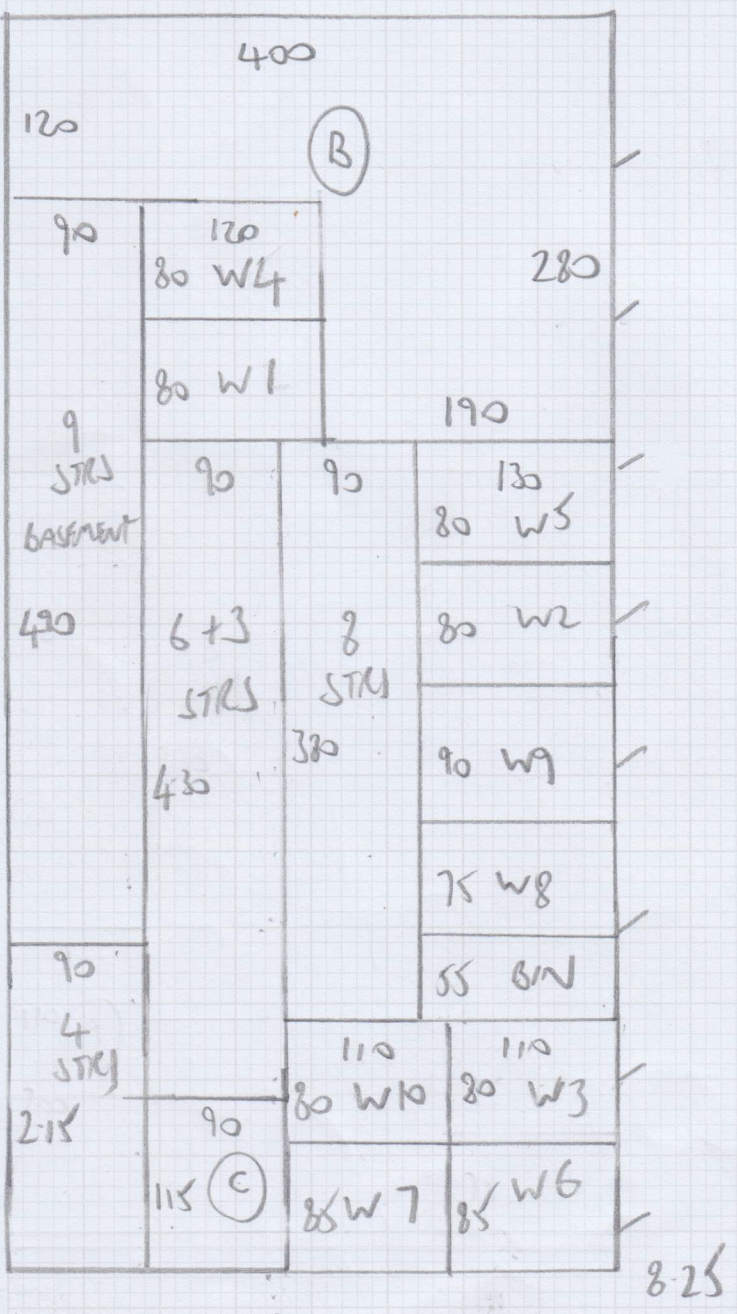 400
120
B
90
120
80 W4
280
80 W1
190
9
STRS
BASEMENT
490
90
6 +3
STRS
430
90
8
STRS
380
130
80 W5
80 W2
90 W9
75 W8
55 BIN
90
4
STRS
2.15
90
115 C
110
80 W10
110
80 W3
85 W7
85 W6
8.25